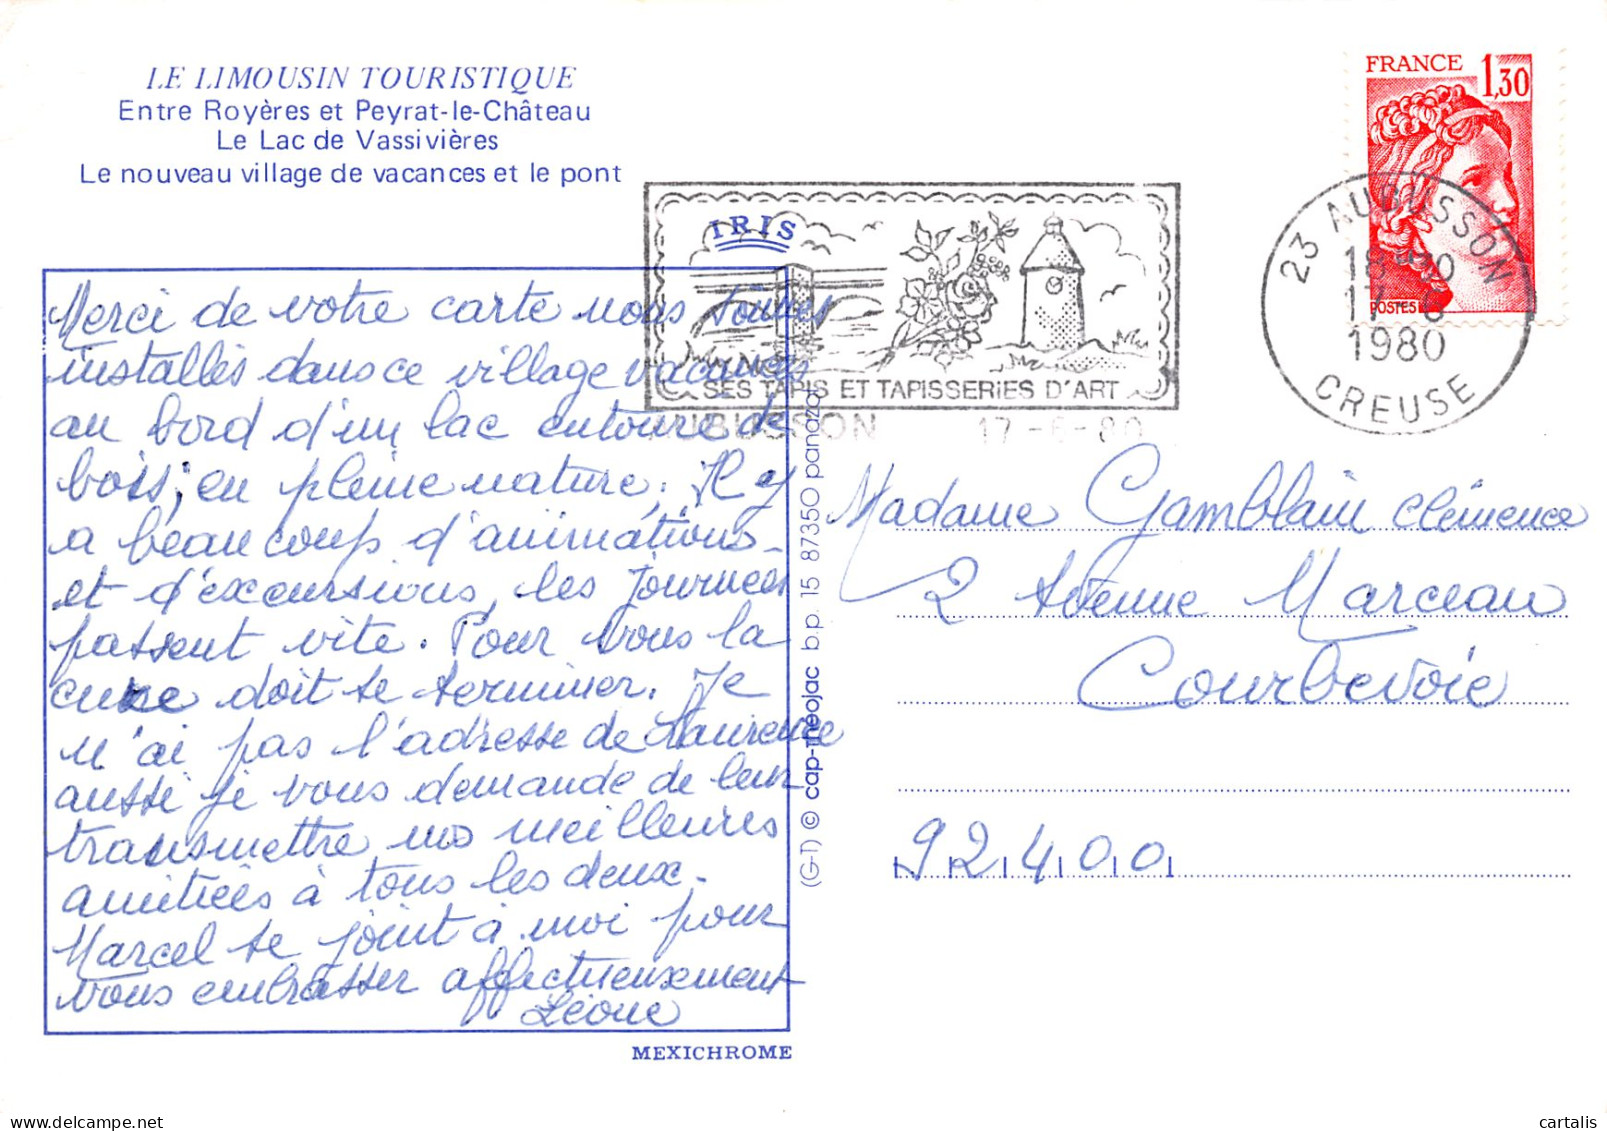 LE LIMOUSIN TOURISTIQUE
Entre Royères et Peyrat-le-Château
Le Lac de Vassivières
Le nouveau village de vacances et le pont
IRIS
Merci de votre carte nous sommes
installés dans ce village vacances
au bord d'un lac entouré de
bois, en pleine nature. Il y
a beaucoup d'animations
et d'excursions, les journées
passent vite. Pour vous la
cure doit se terminer. Je
n'ai pas l'adresse de Laurence
aussi je vous demande de leur
transmettre nos meilleures
amitiés à tous les deux.
Marcel se joint à moi pour
vous embrasser affectueusement
Léone
MEXICHROME
(G-T) © cap-Théojac b.p. 15 87350 panazol
SES TAPIS ET TAPISSERIES D'ART
AUBUSSON 17-6-80
FRANCE 1,30
POSTES
23 AUBUSSON
18H30
17-6
1980
CREUSE
Madame Gamblain Clémence
2 Avenue Marceau
Courbevoie
92400
cartalis